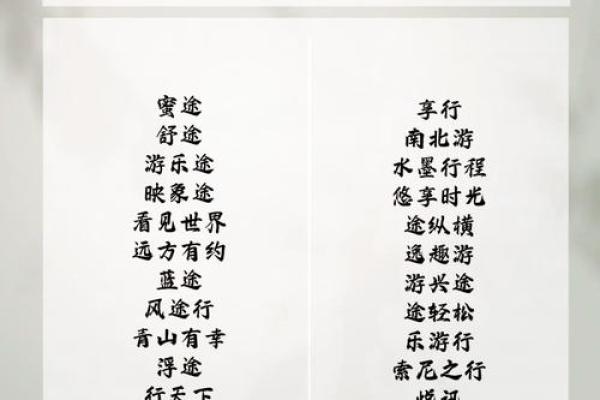 蜜途
舒途
游乐途
映象途
看见世界
远方有约
蓝途
风途行
青山有幸
浮途
行天下
享行
南北游
水墨行程
悠享时光
途纵横
逸趣游
游兴途
途轻松
乐游行
索尼之行